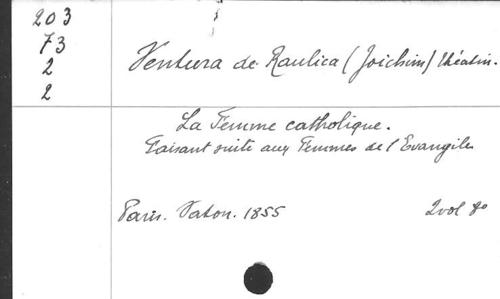 203
73
2
2
Ventura de Raulica (Joichim) théatin.
La Femme catholique.
Faisant suite aux Femmes de l'Evangile
Paris. Vaton. 1855 2 vol 8o